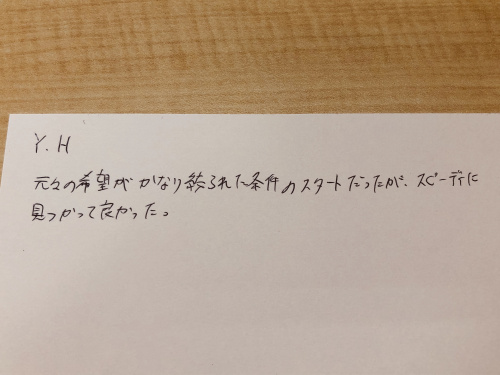 Y.H
元々の希望がかなり絞られた条件のスタートだったが、スピーディに
見つかって良かった。